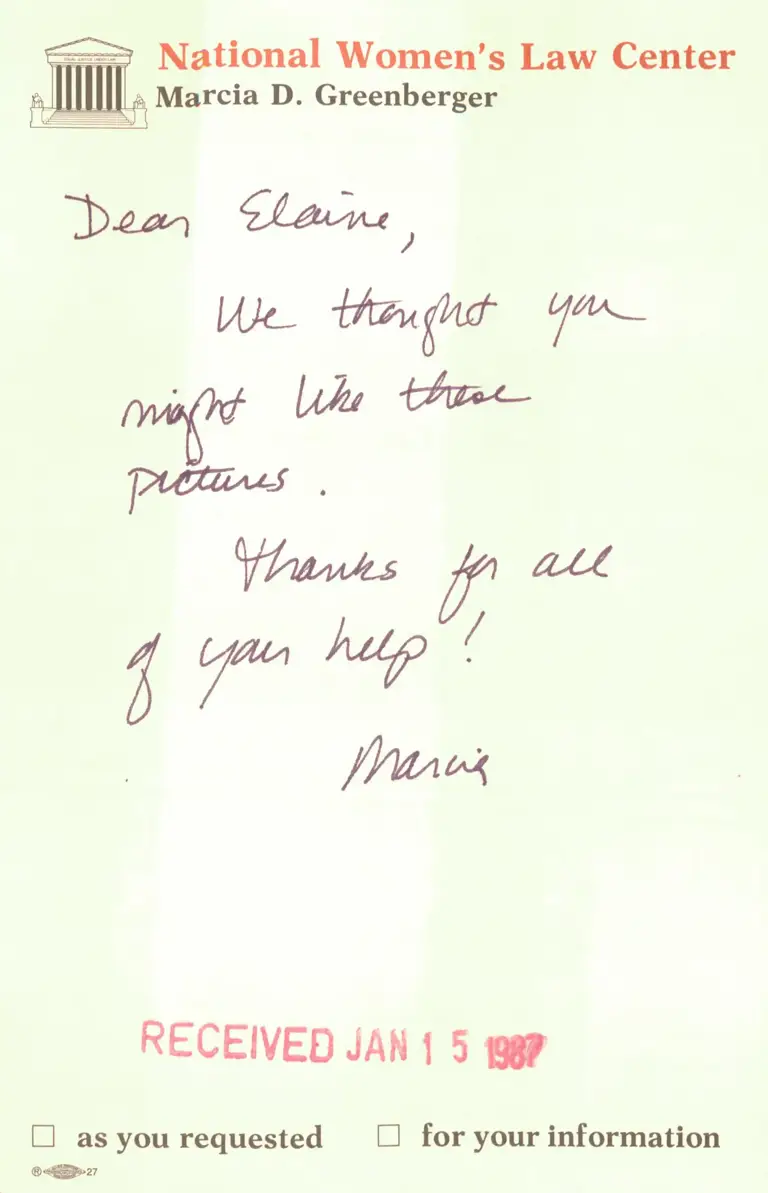 National Women's Law Center
Marcia D. Greenberger
Dear Elaine,
We thought you
might like these
pictures.
Thanks for all
of your help!
Marcia
RECEIVED JAN 15 1987
as you requested
for your information
® 27